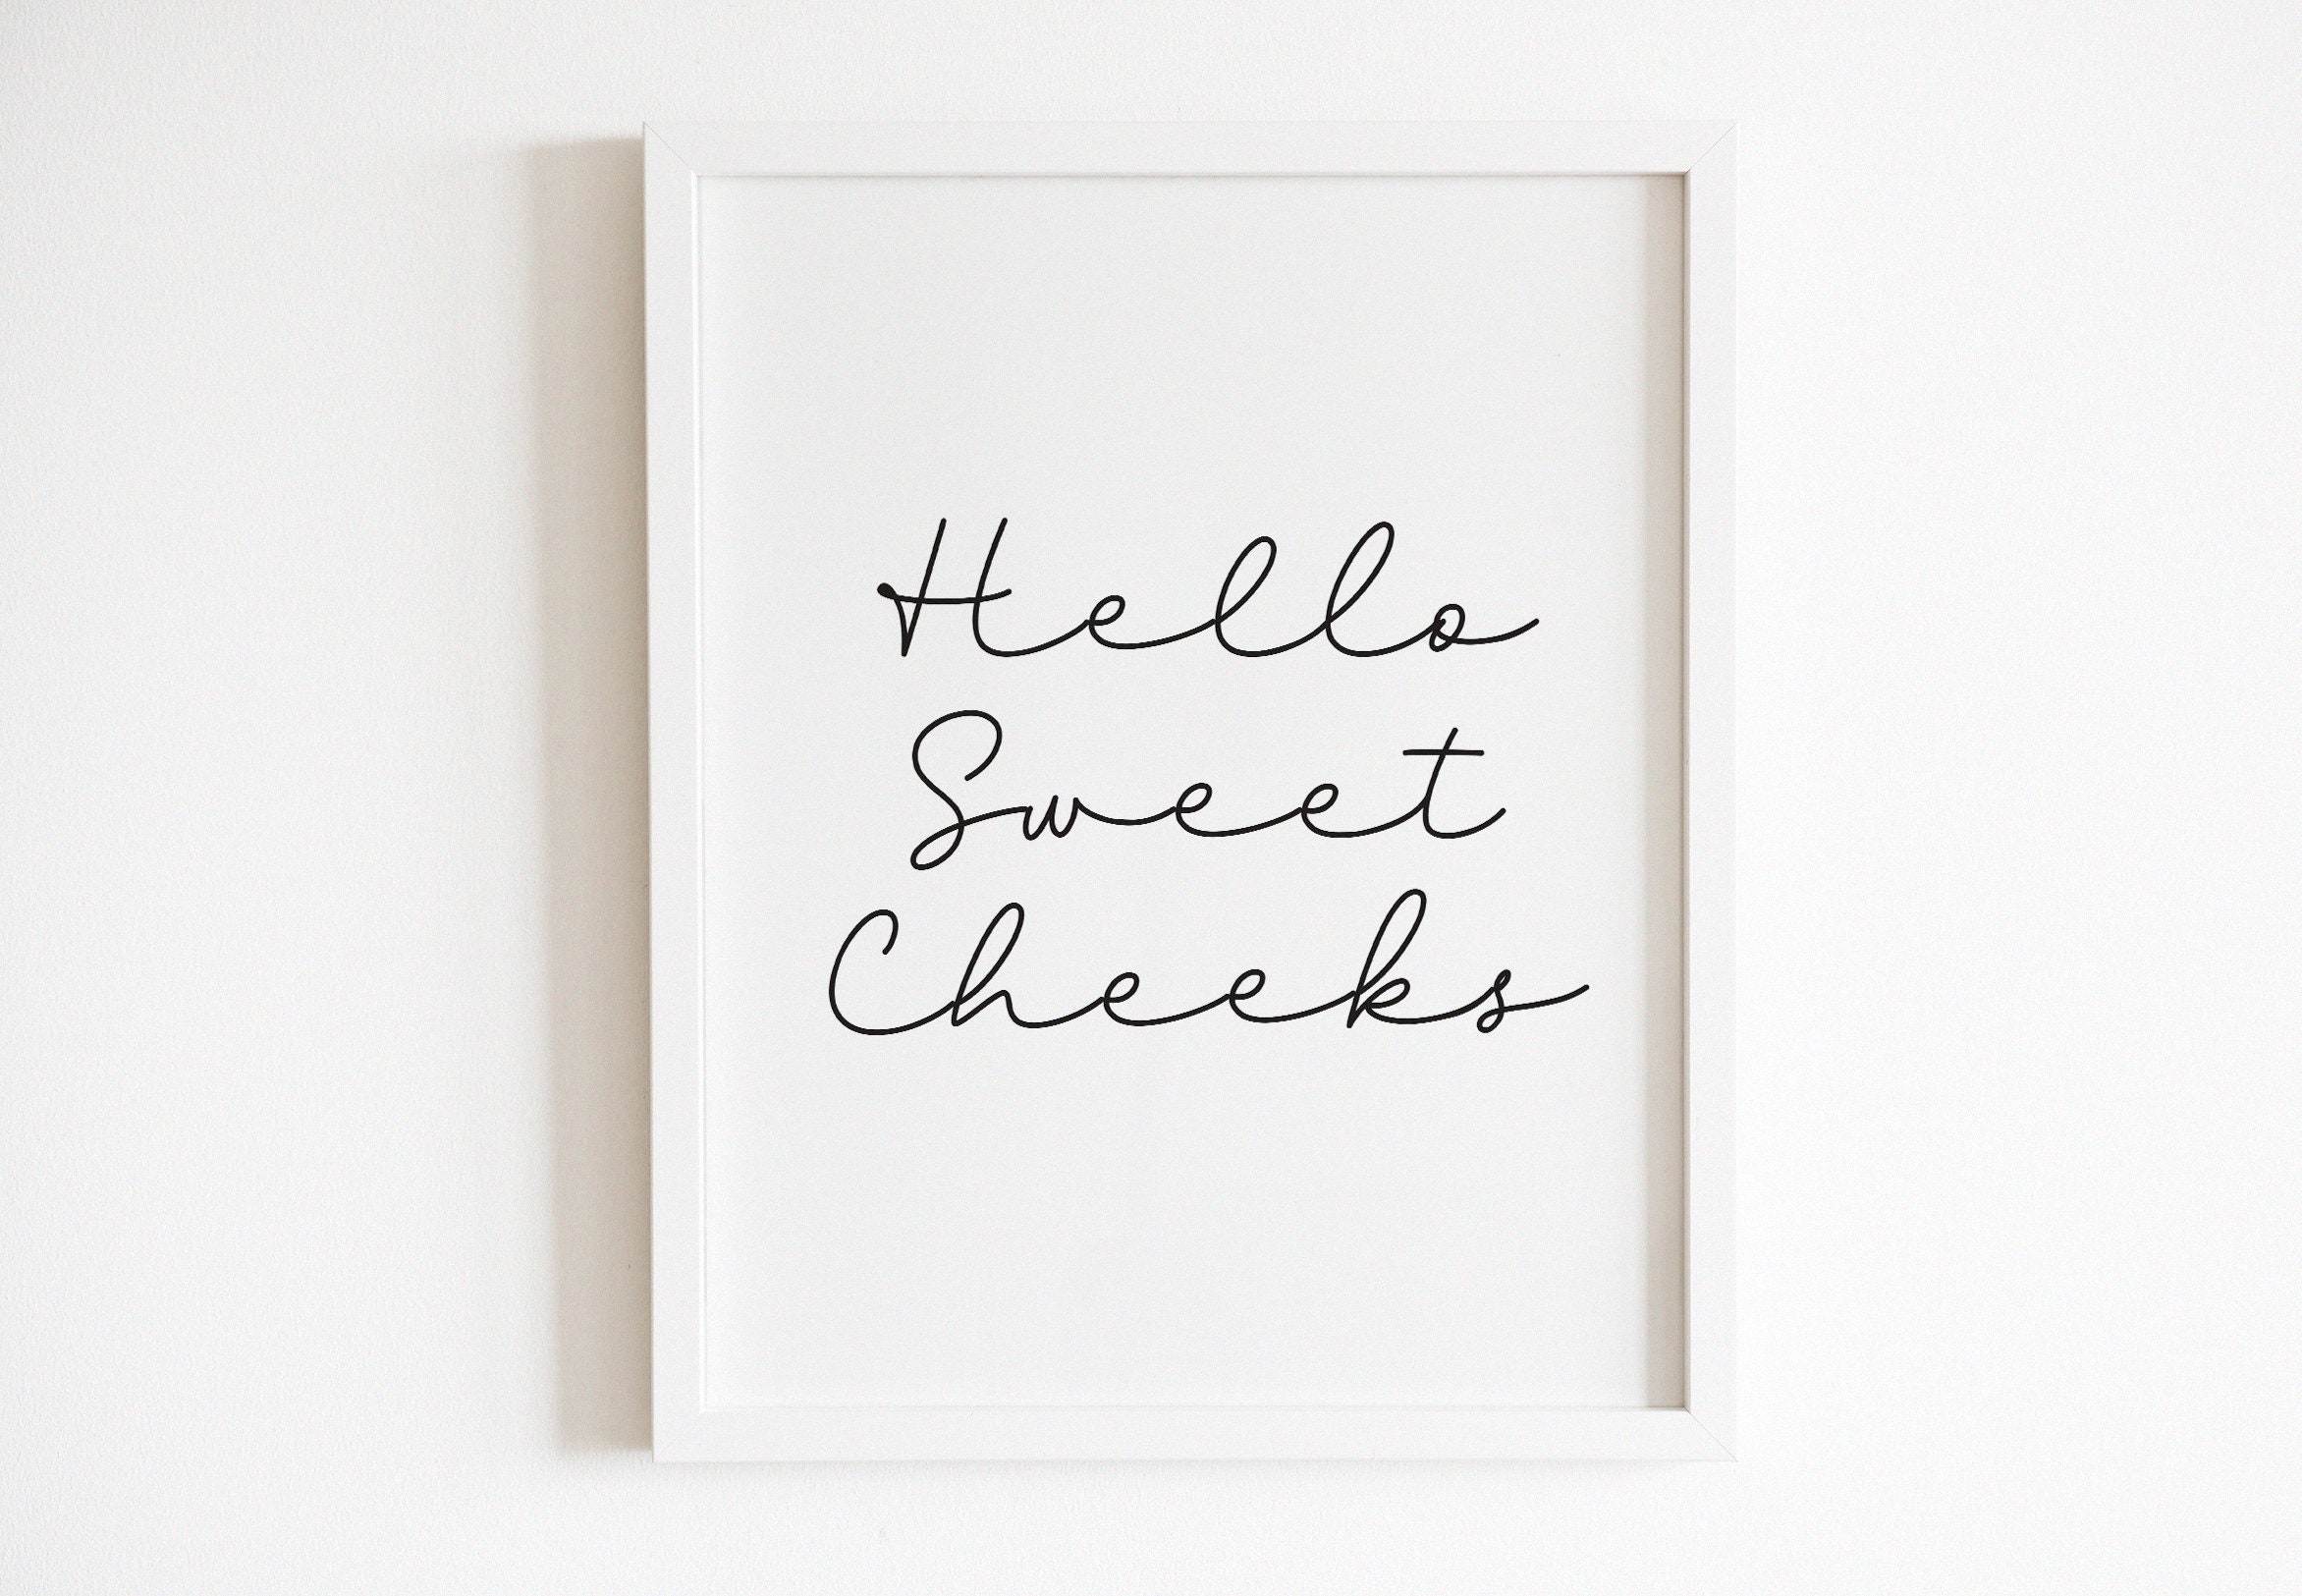 Hello
Sweet
Cheeks